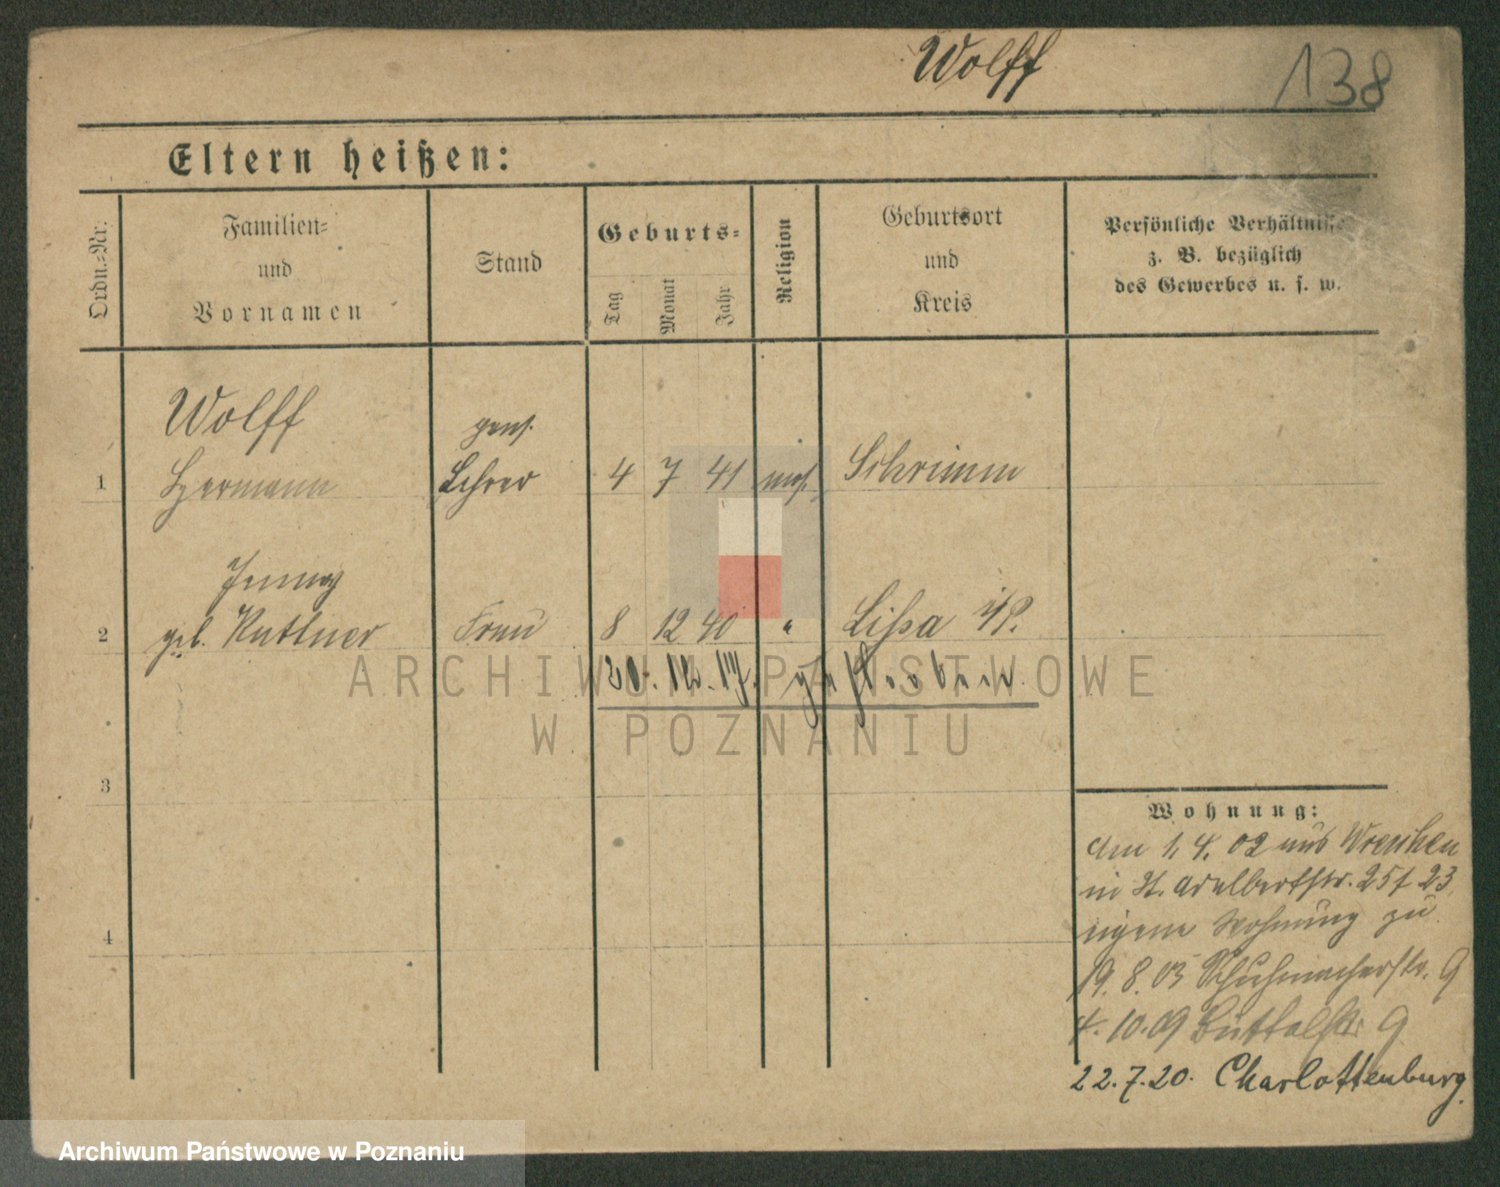 Wolff
138
Eltern heißen:
Ordn.-Nr.
Familien-
und
Vornamen
Stand
Geburts-
Tag
Monat
Jahr
Religion
Geburtsort
und
Kreis
Persönliche Verhältnisse
z. B. bezüglich
des Gewerbes u. s. w.
Wolff
pens.
1 Hermann Lehrer 4 7 41 mos. Schrimm
Jenny
2 geb. Kuttner Frau 8 12 40 " Lissa i/P.
20. 12. 17. gestorben.
3
4
Wohnung:
Am 1. 4. 02 aus Wreschen
in St. Adalbertstr. 25/
eigene Wohnung zu
19. 8. 03 Schuhmacherstr. 9
4. 10. 09 Buttelstr. 9
22.7.20. Charlottenburg.
ARCHIWUM PAŃSTWOWE
W POZNANIU
Archiwum Państwowe w Poznaniu